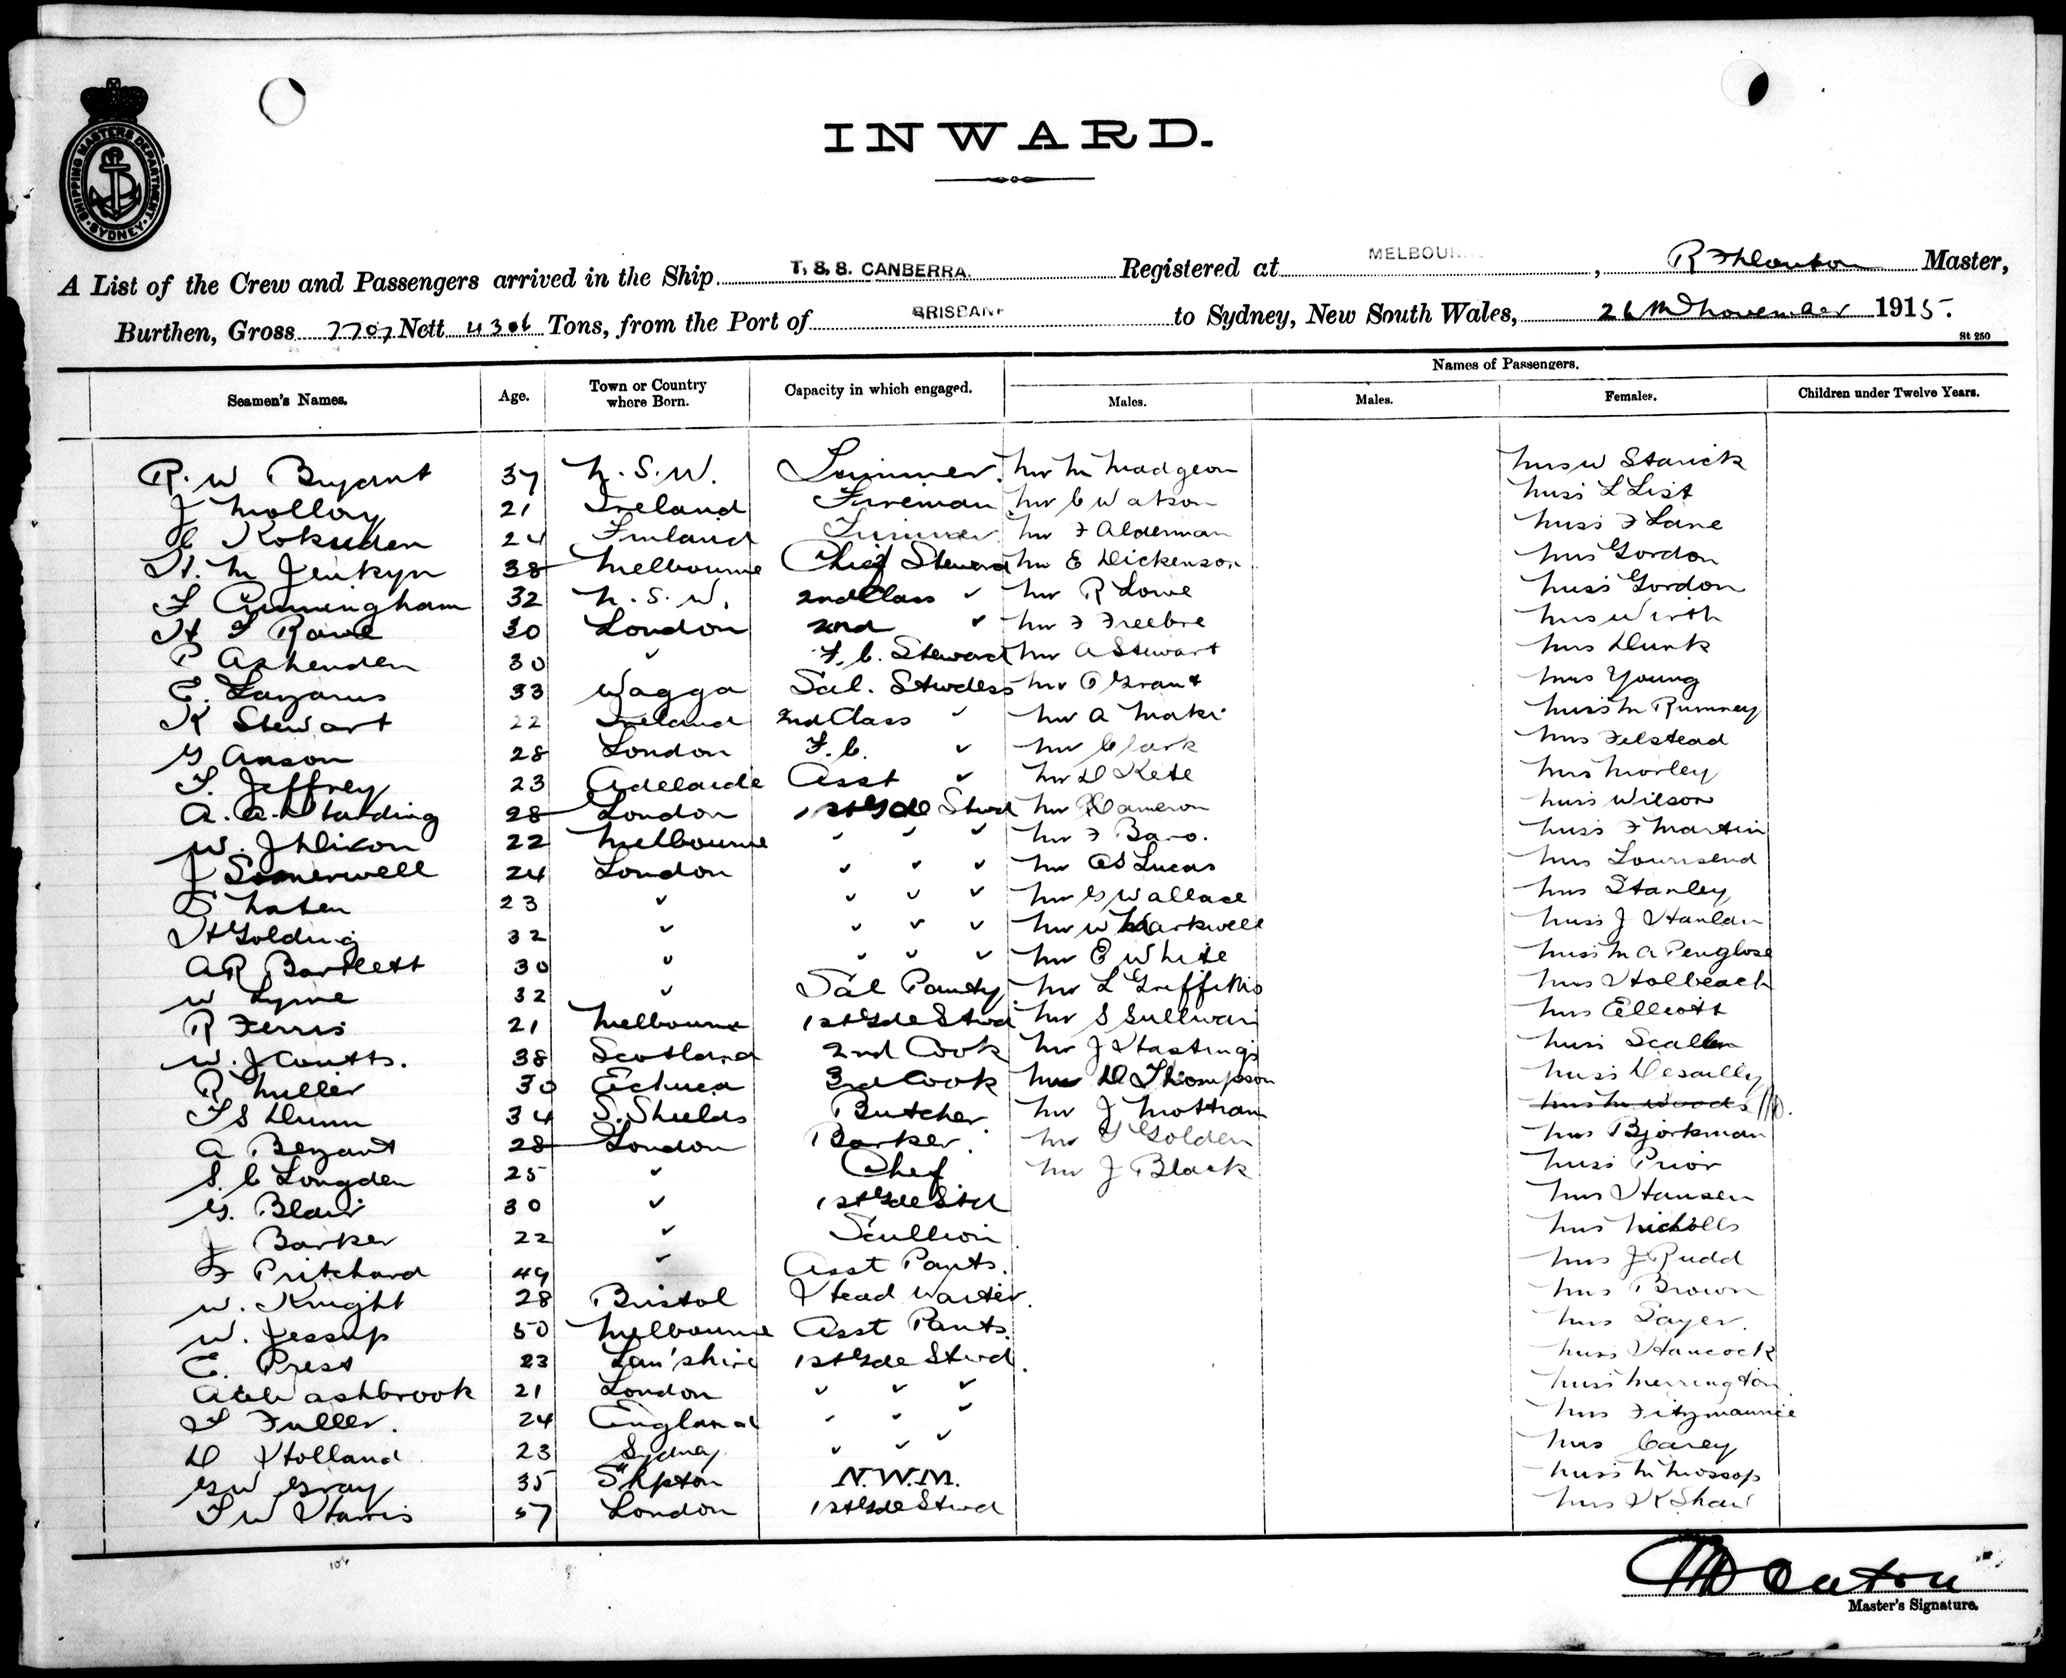 SHIPPING MASTERS DEPARTMENT SYDNEY
INWARD.
A List of the Crew and Passengers arrived in the Ship T.S.S. CANBERRA. Registered at MELBOUR , Master,
Burthen, Gross 7707 Nett 4306 Tons, from the Port of BRISBANE to Sydney, New South Wales, 26th November 1915.
St 250
Names of Passengers.
Seamen's Names. Age. Town or Country where Born. Capacity in which engaged. Males. Males. Females. Children under Twelve Years.
R. W Bryant 37 N.S.W. Trimmer. Mr M Madgeon Mrs W Starick
J Molloy 21 Ireland Fireman Mr C Watson Miss L List
C Kokuden 24 Finland Trimmer Mr F Alderman Miss F Lane
H. M Jenkyn 38 Melbourne Chief Steward Mr E Dickenson Mrs Gordon
F Cunningham 32 N.S.W. 2nd Class " Mr R Lowe Miss Gordon
H F Rowe 30 London 2nd " Mr F Freebre Mrs Wirth
P Ashenden 30 " F.C. Steward Mr A Stewart Mrs Dunk
E. Lazarus 33 Wagga Sal. Stwdess Mr C Grant Mrs Young
K Stewart 22 Ireland 2nd Class " Mr A Maki Miss M Rumney
G Anson 28 London F.C. " Mr Clark Mrs Felstead
F. Jeffrey 23 Adelaide Asst " Mr D Kete Mrs Morley
A. A. Harding 28 London 1st Gde Stwd Mr Cameron Miss Wilson
W. J Dixon 22 Melbourne " " " Mr F Baro. Miss F Martin
J Somerwell 24 London " " " Mr Lucas Mrs Townsend
S Maten 23 " " " " Mr G Wallace Mrs Stanley
H Golding 32 " " " " Mr W Markwell Miss J Hanlan
A R Bartlett 30 " " " " Mr E White Miss M A Penglose
W Lyne 32 " Sal Pantry Mr L Griffiths Mrs Holbeach
R Ferris 21 Melbourne 1st Gde Stwd Mr S Sullivan Mrs Elliott
W. J Coutts. 38 Scotland 2nd Cook Mr J Hastings Miss Scallan
R Miller 30 Echuca 3rd Cook Mr D Thompson Miss Desailly
F S Dunn 34 S. Shields Butcher. Mr J Mottram Miss M Woods
A Bezant 28 London Barker. Mr Golden Mrs Bjorkman
S. C Longden 25 " Chef Mr J Black Miss Prior
G. Blair 30 " 1st Gde Std Mrs Hansen
J Barker 22 " Scullion Mrs Nicholls
F Pritchard 49 " Asst Pants. Mrs J Rudd
W. Knight 28 Bristol Head Waiter. Mrs Brown
W. Jessup 50 Melbourne Asst Pants. Mrs Sayer.
E. Prest 23 Lan'shire 1st Gde Stwd. Miss Hancock
Ashbrook 21 London " " " Miss Merrington
F Fuller. 24 England " " " Mrs Fitzmaurice
D Holland 23 Sydney " " " Mrs Carey
G W Gray 35 S'hpton N.W.M. Miss M Mossop
F W Harris 57 London 1st Gde Stwd Mrs K Shaw
106
Master's Signature.